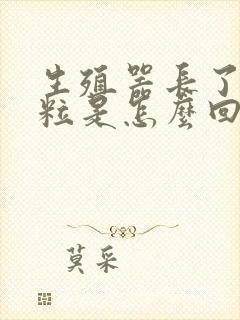 生殖器長了
粒是怎麼回
莫采